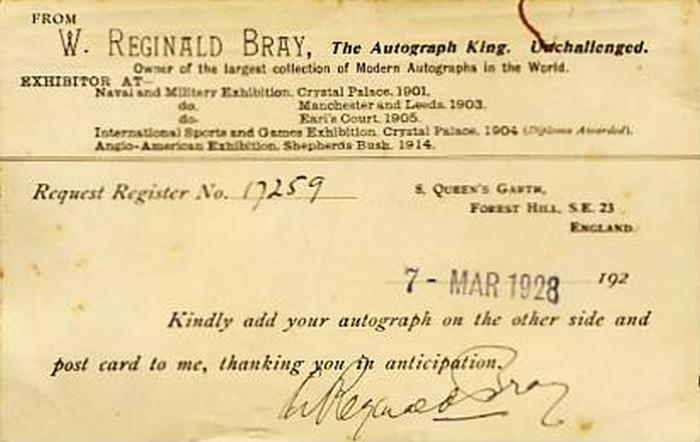 FROM
W. REGINALD BRAY, The Autograph King. Unchallenged.
Owner of the largest collection of Modern Autographs in the World.
EXHIBITOR AT—
Naval and Military Exhibition, Crystal Palace, 1901.
do. Manchester and Leeds, 1903.
do. Earl's Court, 1905.
International Sports and Games Exhibition, Crystal Palace, 1904 (Diploma Awarded).
Anglo-American Exhibition, Shepherds Bush, 1914.
Request Register No. 17259
5, QUEEN'S GARTH,
FOREST HILL, S.E. 23
ENGLAND
7 - MAR 1928 192
Kindly add your autograph on the other side and
post card to me, thanking you in anticipation.
W Reginald Bray